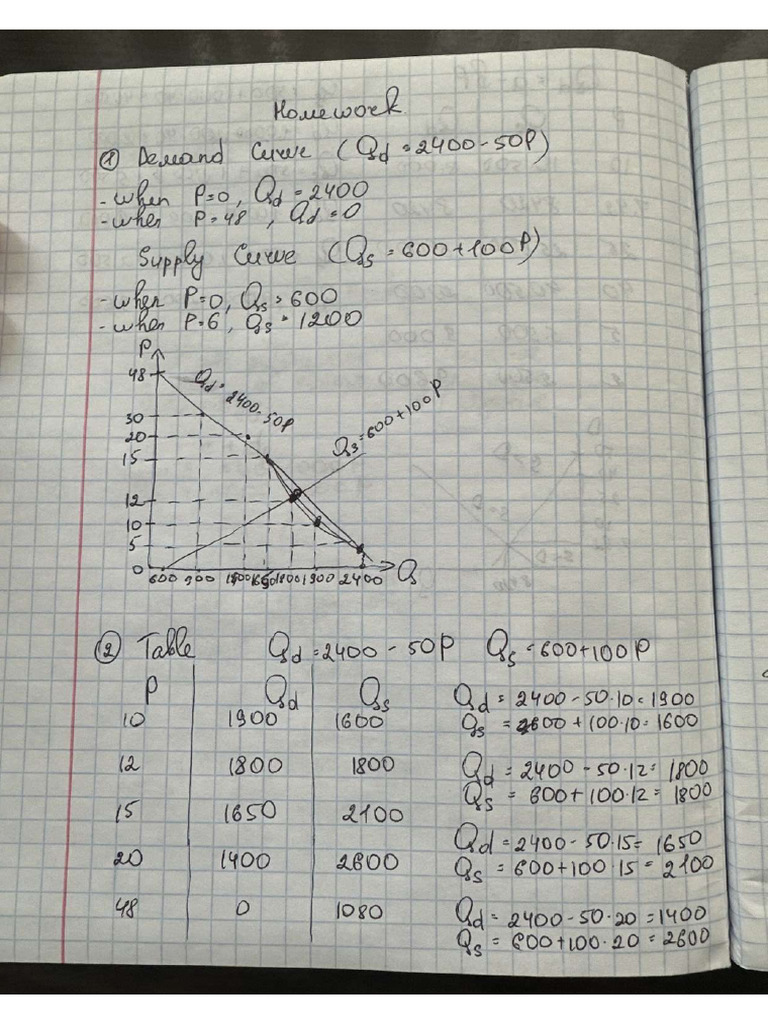 Homework
① Demand Curve (Qd = 2400 - 50P)
- when P=0, Qd = 2400
- when P=48, Qd = 0
Supply Curve (Qs = 600 + 100P)
- when P=0, Qs = 600
- when P=6, Qs = 1200
P
48
30
20
15
12
10
5
0
Qd = 2400 - 50P
Qs = 600 + 100P
600 900 1500 1650 1800 1900 2400 Q
② Table Qd = 2400 - 50P Qs = 600 + 100P
P Qd Qs Qd = 2400 - 50·10 = 1900
10 1900 1600 Qs = 600 + 100·10 = 1600
12 1800 1800 Qd = 2400 - 50·12 = 1800
Qs = 600 + 100·12 = 1800
15 1650 2100 Qd = 2400 - 50·15 = 1650
20 1400 2600 Qs = 600 + 100·15 = 2100
48 0 1080 Qd = 2400 - 50·20 = 1400
Qs = 600 + 100·20 = 2600